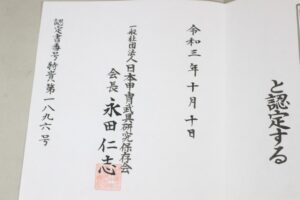 と認定する
令和三年十月十日
一般社団法人日本甲冑武具研究保存会
会長 永田仁志
認定書番号特貴第一八九六号